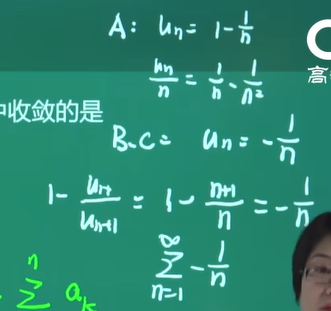 A: uₙ = 1 - 1/n
uₙ/n = 1/n - 1/n²
高
收敛的是
B.C = uₙ = -1/n
1 - uₙ/uₙ₊₁ = 1 - (n+1)/n = -1/n
∞
∑ -1/n
n=1
n
∑ aₖ